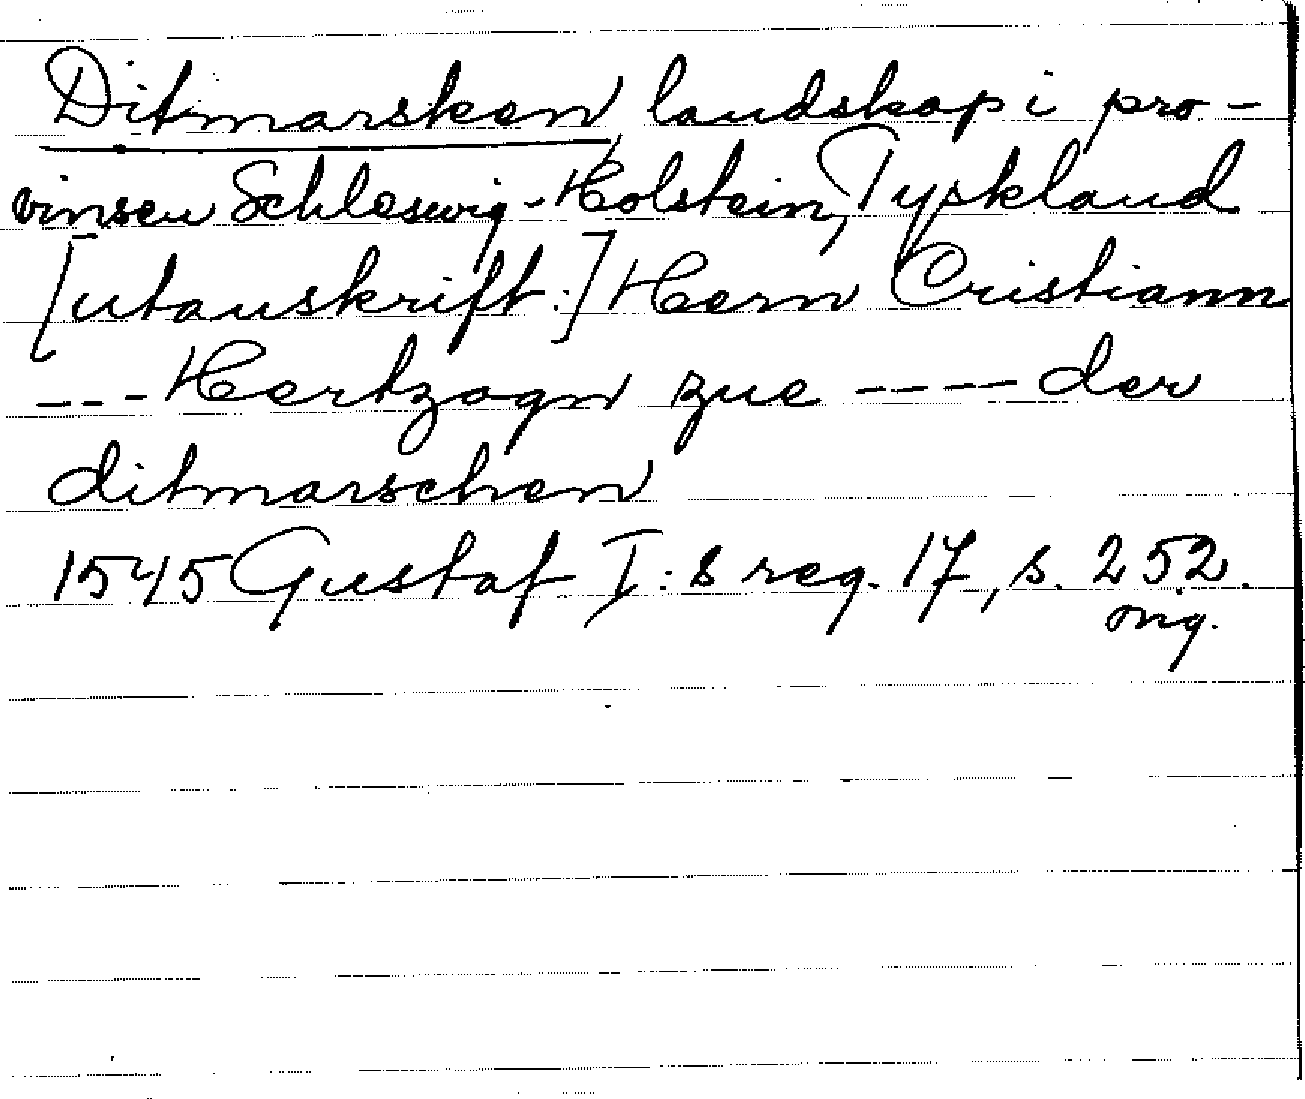 Ditmarsken, landskap i pro-
vinsen Schleswig-Holstein, Tyskland
[utanskrift:] Hern Cristiann
--- Hertzogn zue ---- der
ditmarschen
1545 Gustaf I:s reg. 17, s. 252.
orig.